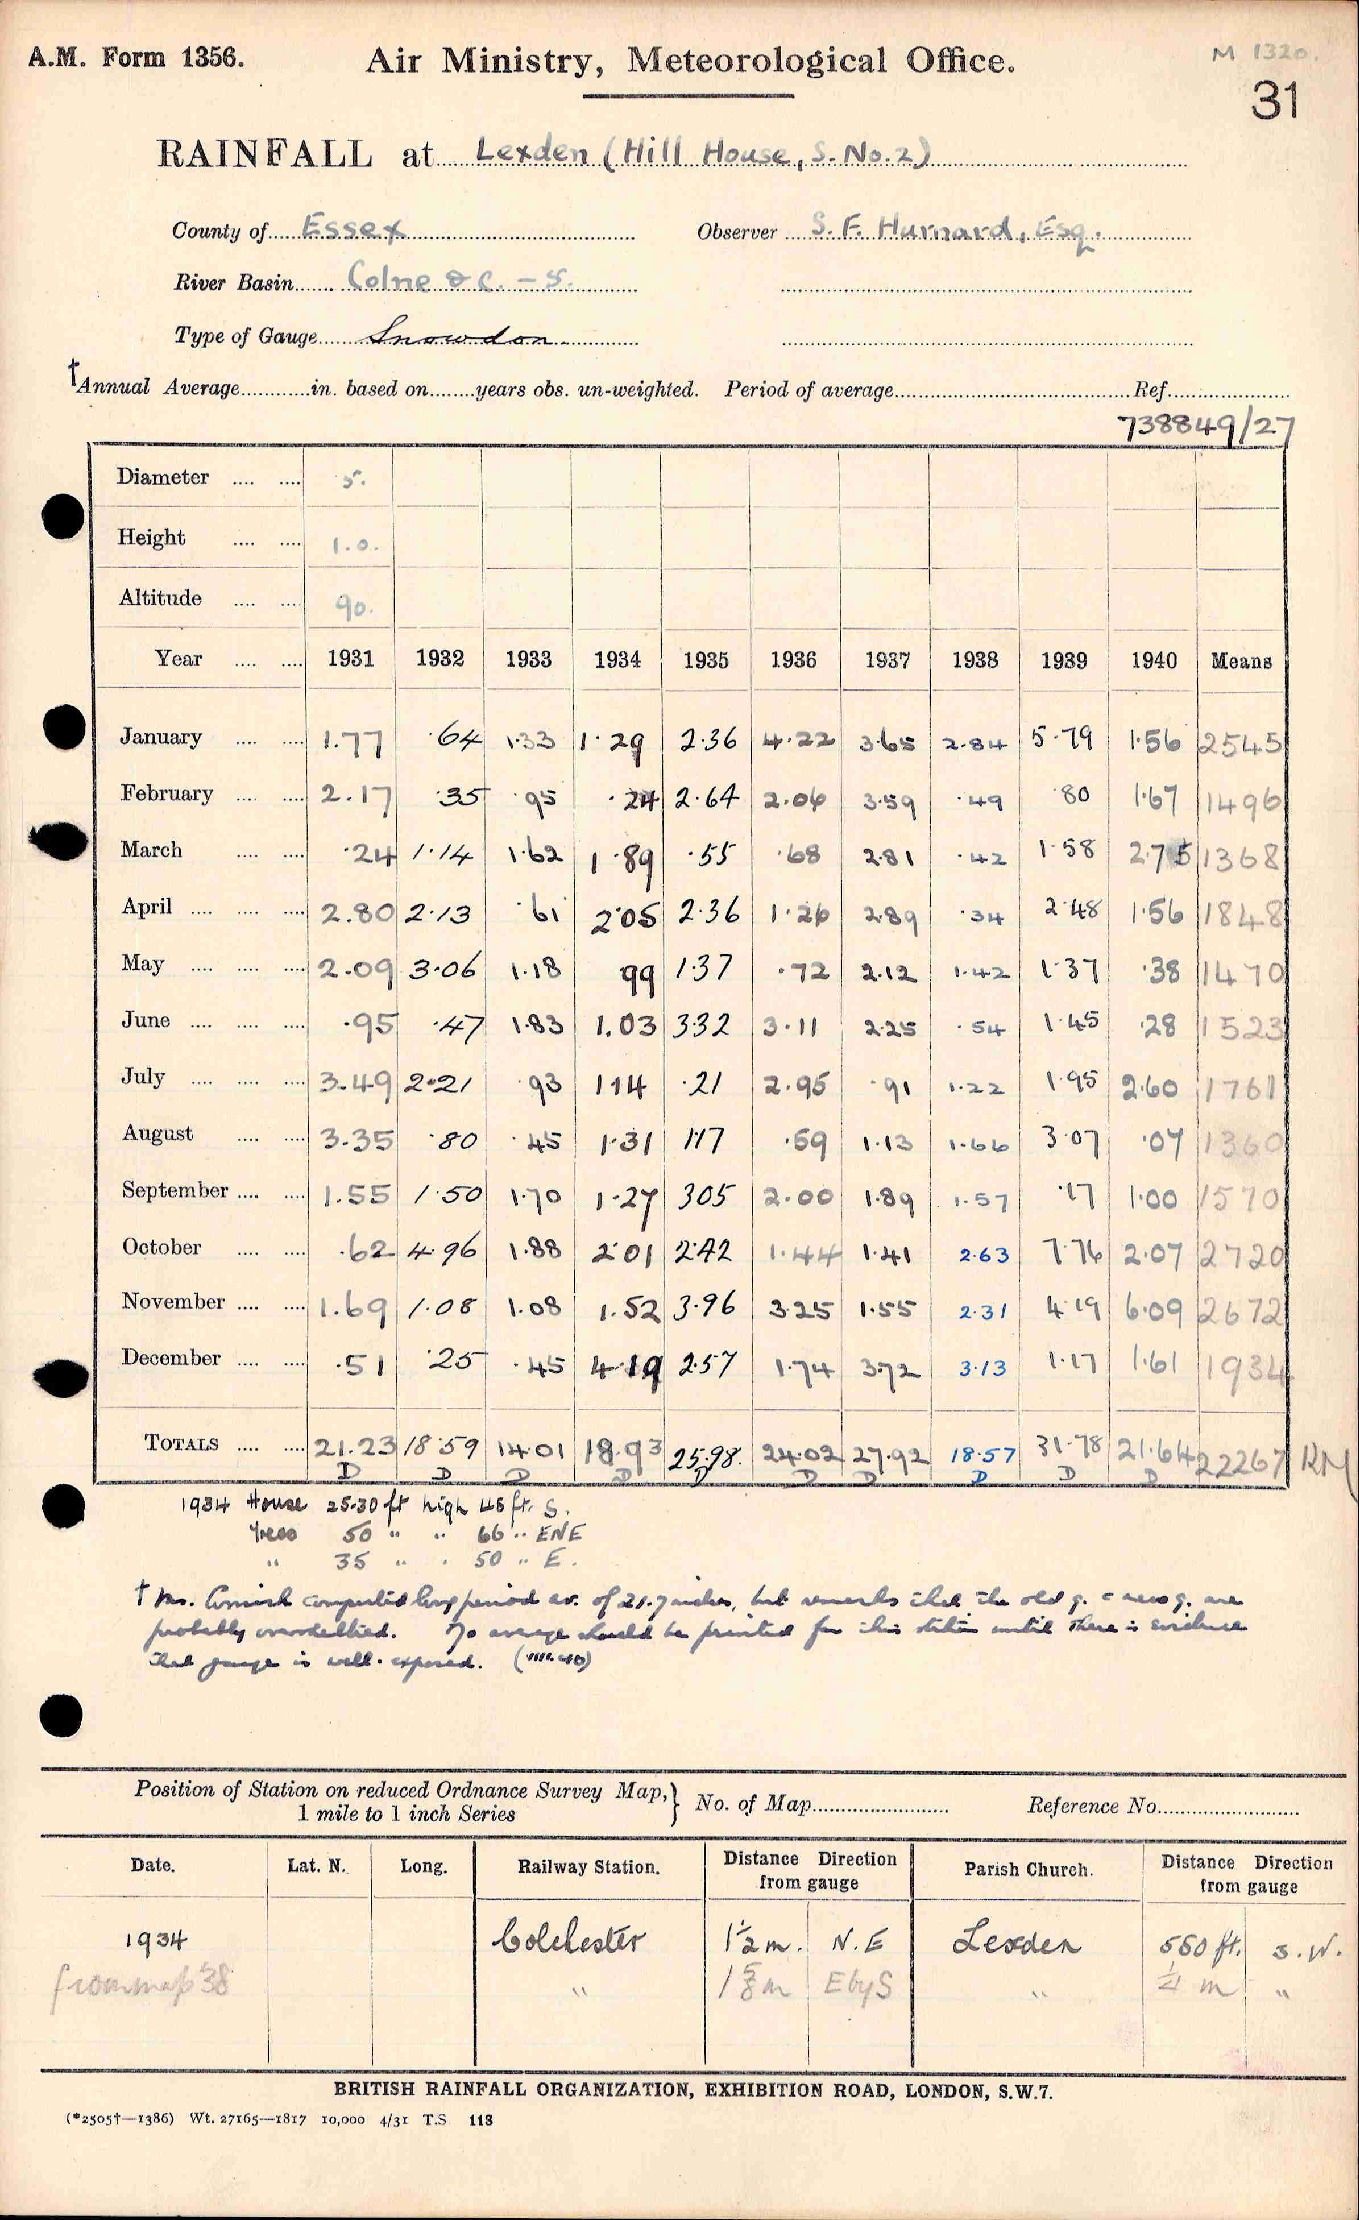 A.M. Form 1356. Air Ministry, Meteorological Office. M 1320.
31
RAINFALL at Lexden (Hill House, S. No. 2)
County of Essex Observer S. F. Hurnard, Esq.
River Basin Colne &c. – 5.
Type of Gauge Snowdon
†Annual Average in. based on years obs. un-weighted. Period of average Ref.
738849/27
Diameter 5.
Height 1.0.
Altitude 90.
Year 1931 1932 1933 1934 1935 1936 1937 1938 1939 1940 Means
January 1.77 .64 1.33 1.29 2.36 4.22 3.65 2.84 5.79 1.56 2545
February 2.17 .35 .95 .24 2.64 2.06 3.59 .49 .80 1.67 1496
March .24 1.14 1.62 1.89 .55 .68 2.81 .42 1.58 2.75 1368
April 2.80 2.13 .61 2.05 2.36 1.26 2.89 .34 2.48 1.56 1848
May 2.09 3.06 1.18 99 1.37 .72 2.12 1.42 1.37 .38 1470
June .95 .47 1.83 1.03 3.32 3.11 2.25 .54 1.45 .28 1523
July 3.49 2.21 .93 1.14 .21 2.95 .91 1.22 1.95 2.60 1761
August 3.35 .80 .45 1.31 1.17 .59 1.13 1.66 3.07 .07 1360
September 1.55 1.50 1.70 1.27 3.05 2.00 1.89 1.57 .17 1.00 1570
October .62 4.96 1.88 2.01 2.42 1.44 1.41 2.63 7.76 2.07 2720
November 1.69 1.08 1.08 1.52 3.96 3.25 1.55 2.31 4.19 6.09 2672
December .51 .25 .45 4.19 2.57 1.74 3.72 3.13 1.17 1.61 1934
TOTALS 21.23 18.59 14.01 18.93 25.98. 24.02 27.92 18.57 31.78 21.64 22267 RM
D D D D D D D D D D
1934 House 25-30 ft high 45 ft. S.
Trees 50 " " 66 " ENE
" 35 " " 50 " E.
† Mr. Cornish computed long period av. of 21.7 inches, but remarks that the old g. & new g. are
probably oversheltered. No average should be printed for this station until there is evidence
that gauge is well-exposed.
Position of Station on reduced Ordnance Survey Map,} No. of Map Reference No.
1 mile to 1 inch Series
Date. Lat. N. Long. Railway Station. Distance Direction from gauge Parish Church. Distance Direction from gauge
1934 Colchester 1½ m. N.E Lexden 550 ft. S.W.
from map '38 " 1⅝ m E by S " ¼ m "
BRITISH RAINFALL ORGANIZATION, EXHIBITION ROAD, LONDON, S.W.7.
(*2505†—1386) Wt. 27165—1817 10,000 4/31 T.S 113